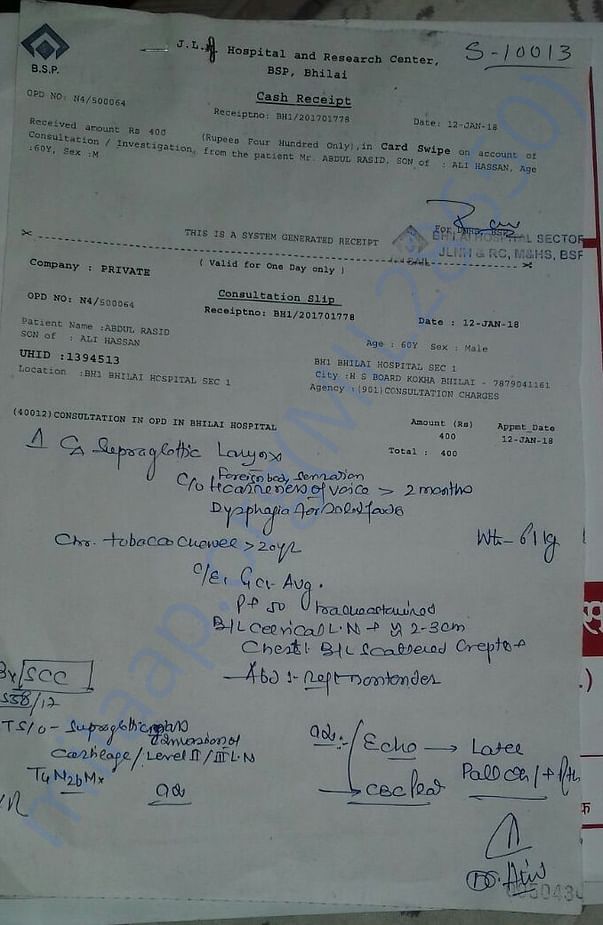 B.S.P.
J.L.N Hospital and Research Center,
BSP, Bhilai
S-10013
Cash Receipt
OPD NO: N4/500064
Receiptno: BH1/201701778
Date: 12-JAN-18
Received amount Rs 400 (Rupees Four Hundred Only),in Card Swipe on account of
Consultation / Investigation, from the patient Mr. ABDUL RASID, SON of : ALI HASSAN, Age
:60Y, Sex :M
THIS IS A SYSTEM GENERATED RECEIPT
BHILAI HOSPITAL SECTOR
JLNH & RC, M&HS, BSP
SAIL
Company : PRIVATE
( Valid for One Day only )
OPD NO: N4/500064
Consultation Slip
Receiptno: BH1/201701778
Date : 12-JAN-18
Patient Name :ABDUL RASID
SON of : ALI HASSAN
Age : 60Y Sex : Male
UHID :1394513
Location :BH1 BHILAI HOSPITAL SEC 1
BH1 BHILAI HOSPITAL SEC 1
City :H S BOARD KOKHA BHILAI - 7879041161
Agency :(901)CONSULTATION CHARGES
(40012)CONSULTATION IN OPD IN BHILAI HOSPITAL
Amount (Rs)
400
Appmt_Date
12-JAN-18
Total : 400
Ca Supraglottic Larynx
Foreign body sensation
C/o Hoarseness of voice > 2 months
Dysphagia for solid food
Chr. tobacco chewer > 20yr
Wt - 61 kg
C/E, GC - Avg.
tracheostomised
B/L cervical L.N + 2-3cm
Chest: B/L scattered crepts +
Abd :- soft nontender
Bx SCC
538/17
CTS/o - supraglottic mass
Cartilage / Level II / III L.N
T4N2bMx
Adv
Adv :- Echo → Later
Pall CH/+ RTh
→ CBC
Dr.